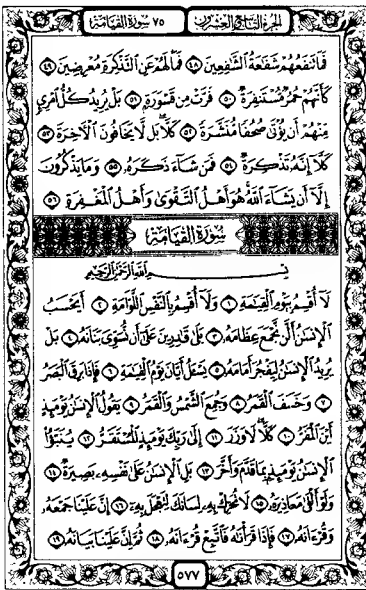 الجزء التاسع والعشرون ٧٥ سورة القيامة
فَمَا تَنفَعُهُمْ شَفَٰعَةُ ٱلشَّٰفِعِينَ ٤٨ فَمَا لَهُمْ عَنِ ٱلتَّذْكِرَةِ مُعْرِضِينَ ٤٩
كَأَنَّهُمْ حُمُرٌ مُّسْتَنفِرَةٌ ٥٠ فَرَّتْ مِن قَسْوَرَةٍۭ ٥١ بَلْ يُرِيدُ كُلُّ ٱمْرِئٍ
مِّنْهُمْ أَن يُؤْتَىٰ صُحُفًا مُّنَشَّرَةً ٥٢ كَلَّا بَل لَّا يَخَافُونَ ٱلْأَخِرَةَ ٥٣
كَلَّآ إِنَّهُۥ تَذْكِرَةٌ ٥٤ فَمَن شَآءَ ذَكَرَهُۥ ٥٥ وَمَا يَذْكُرُونَ
إِلَّآ أَن يَشَآءَ ٱللَّهُ هُوَ أَهْلُ ٱلتَّقْوَىٰ وَأَهْلُ ٱلْمَغْفِرَةِ ٥٦
سُورَةُ القِيَامَةِ
بِسْمِ ٱللَّهِ ٱلرَّحْمَٰنِ ٱلرَّحِيمِ
لَآ أُقْسِمُ بِيَوْمِ ٱلْقِيَٰمَةِ ١ وَلَآ أُقْسِمُ بِٱلنَّفْسِ ٱللَّوَّامَةِ ٢ أَيَحْسَبُ
ٱلْإِنسَٰنُ أَلَّن نَّجْمَعَ عِظَامَهُۥ ٣ بَلَىٰ قَٰدِرِينَ عَلَىٰٓ أَن نُّسَوِّىَ بَنَانَهُۥ ٤ بَلْ
يُرِيدُ ٱلْإِنسَٰنُ لِيَفْجُرَ أَمَامَهُۥ ٥ يَسْـَٔلُ أَيَّانَ يَوْمُ ٱلْقِيَٰمَةِ ٦ فَإِذَا بَرِقَ ٱلْبَصَرُ
٧ وَخَسَفَ ٱلْقَمَرُ ٨ وَجُمِعَ ٱلشَّمْسُ وَٱلْقَمَرُ ٩ يَقُولُ ٱلْإِنسَٰنُ يَوْمَئِذٍ
أَيْنَ ٱلْمَفَرُّ ١٠ كَلَّا لَا وَزَرَ ١١ إِلَىٰ رَبِّكَ يَوْمَئِذٍ ٱلْمُسْتَقَرُّ ١٢ يُنَبَّؤُا۟
ٱلْإِنسَٰنُ يَوْمَئِذٍۭ بِمَا قَدَّمَ وَأَخَّرَ ١٣ بَلِ ٱلْإِنسَٰنُ عَلَىٰ نَفْسِهِۦ بَصِيرَةٌ ١٤
وَلَوْ أَلْقَىٰ مَعَاذِيرَهُۥ ١٥ لَا تُحَرِّكْ بِهِۦ لِسَانَكَ لِتَعْجَلَ بِهِۦٓ ١٦ إِنَّ عَلَيْنَا جَمْعَهُۥ
وَقُرْءَانَهُۥ ١٧ فَإِذَا قَرَأْنَٰهُ فَٱتَّبِعْ قُرْءَانَهُۥ ١٨ ثُمَّ إِنَّ عَلَيْنَا بَيَانَهُۥ ١٩
٥٧٧